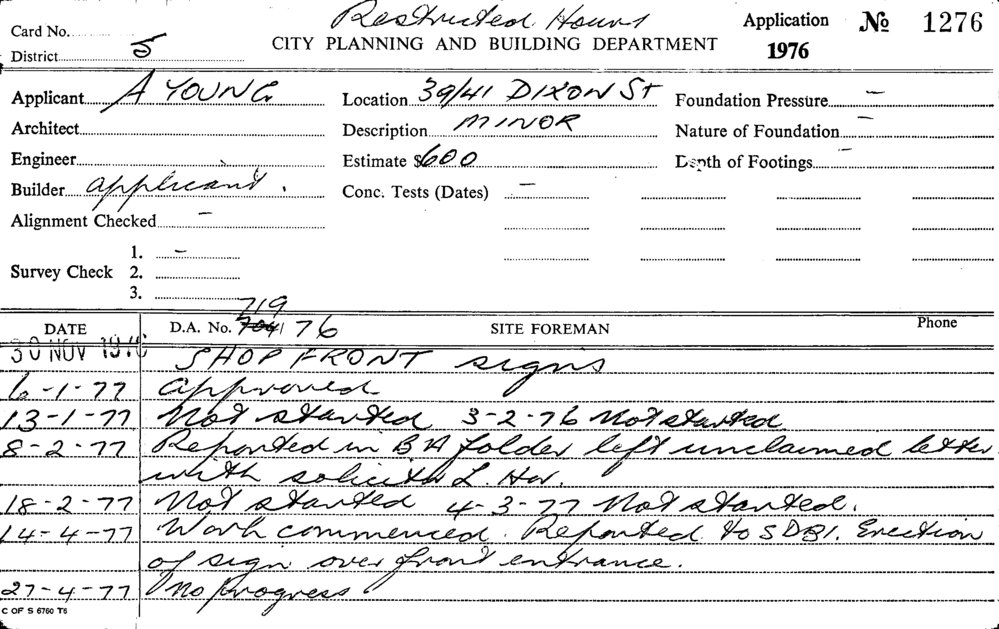 Restricted Hours
Card No. Application № 1276
CITY PLANNING AND BUILDING DEPARTMENT
District 5 1976
Applicant A YOUNG Location 39/41 DIXON St Foundation Pressure –
Architect Description MINOR Nature of Foundation –
Engineer Estimate $600 Depth of Footings –
Builder applicant. Conc. Tests (Dates) –
Alignment Checked –
1. –
Survey Check 2.
3.
719
DATE D.A. No. 704/76 SITE FOREMAN Phone
30 NOV 1976 SHOP FRONT signs
6-1-77 approved
13-1-77 Not started 3-2-76 Not started
8-2-77 Reported in BA folder left unclaimed letter
with solicitor L.
18-2-77 Not started 4-3-77 Not started.
14-4-77 Work commenced. Reported to SDBI. Erection
of sign over front entrance.
27-4-77 No progress
C OF S 6760 T6